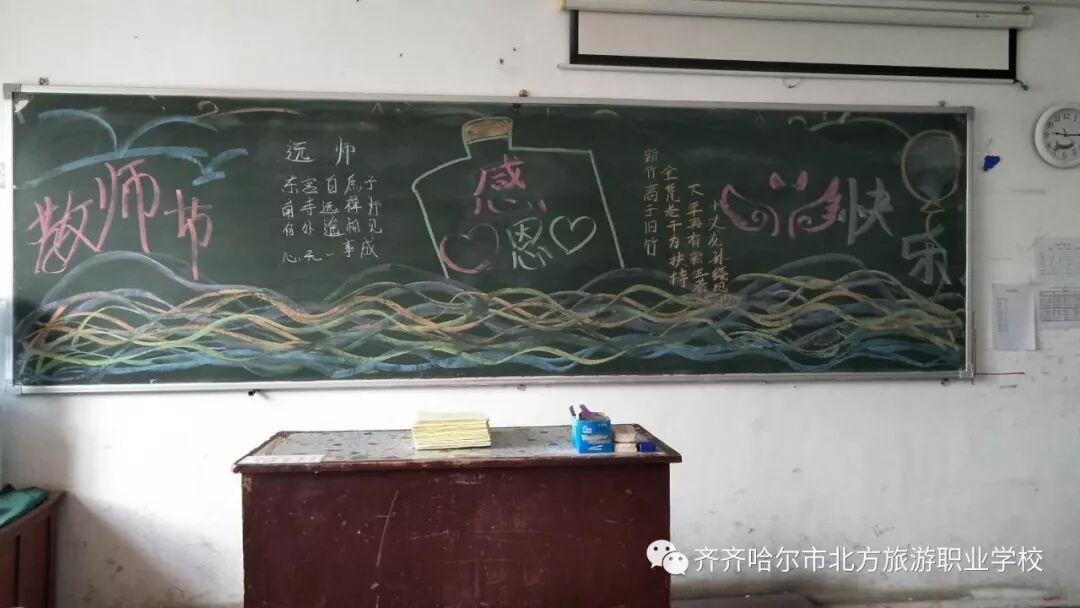 教师节
远师
东宫自庶子
南寺远禅
何处遥相见
心无一事
感恩
新竹高于旧竹
全凭老干为扶持
下年再有新生者
十丈龙孙绕凤池
快乐
齐齐哈尔市北方旅游职业学校